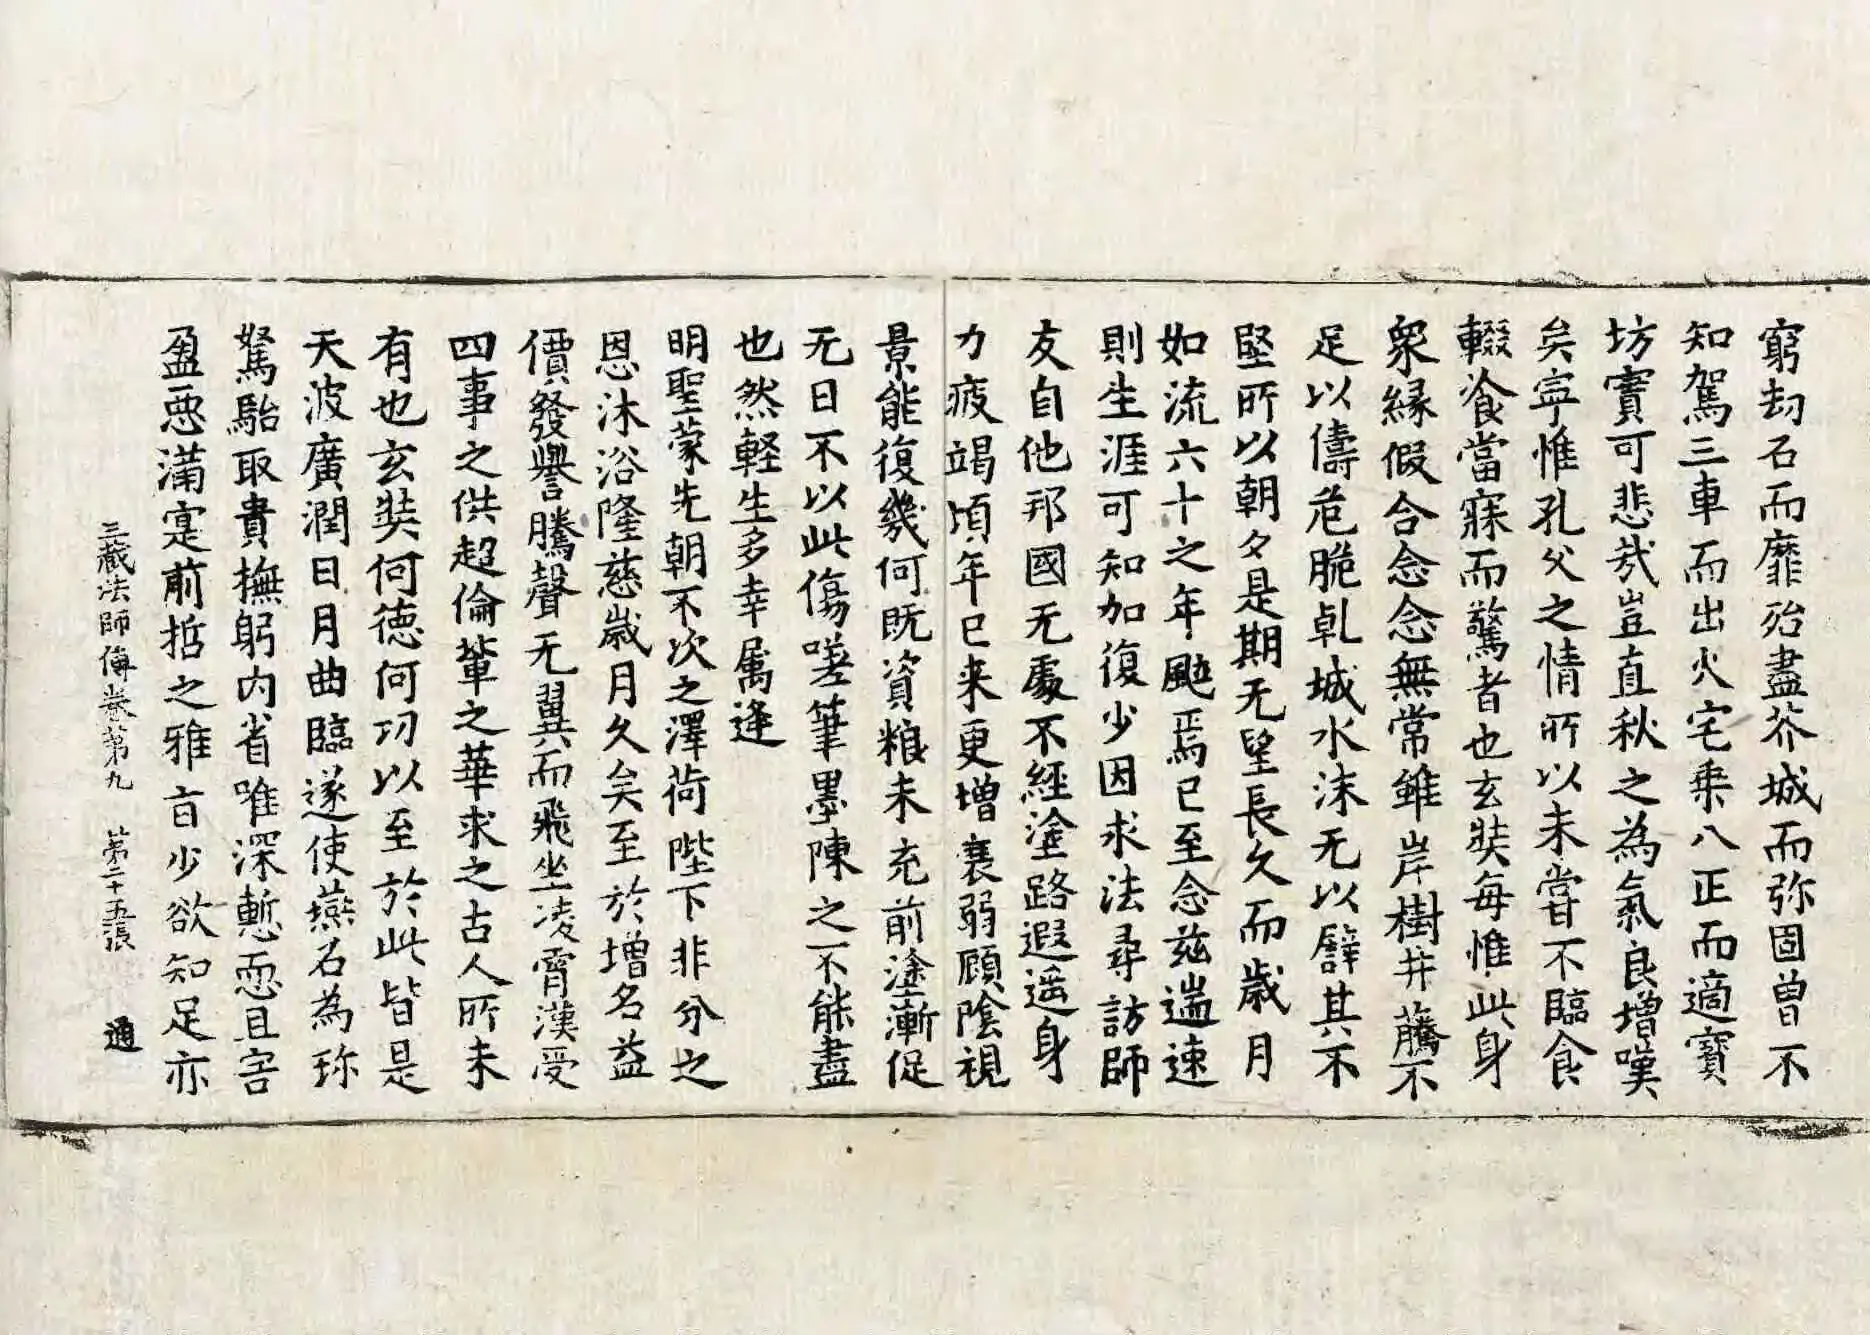 窮劫石而靡殆盡芥城而弥固曽不
知駕三車而出火宅乗八正而適寶
坊實可悲㢤豈直秋之為氣良増嘆
矣寜惟孔父之情所以未甞不臨食
輟飡當寐而驚者也玄奘毎惟此身
衆縁假合念念無常雖岸樹井藤不
足以儔危脆乹城水沫无以譬其不
堅所以朝夕是期无望長久而歳月
如流六十之年颷焉已至念兹遄速
則生涯可知加復少因求法尋訪師
友自他邦國无處不經塗路遐遥身
力疲竭頃年已来更増衰弱顧陰視
景能復幾何既資粮未充前塗漸促
无日不以此傷嗟筆墨陳之不能盡
也然軽生多幸属逢
明聖蒙先朝不次之澤荷陛下非分之
恩沐浴隆慈歳月久矣至於増名益
價發譽騰聲无翼而飛坐凌霄漢受
四事之供超倫輩之華求之古人所未
有也玄奘何徳何功以至於此皆是
天波廣潤日月曲臨遂使燕石為珎
駑駘取貴撫躬内省唯深慙恧且害
盈悪滿寔前哲之雅旨少欲知足亦
三蔵法師傳巻第九 第二十五張 通